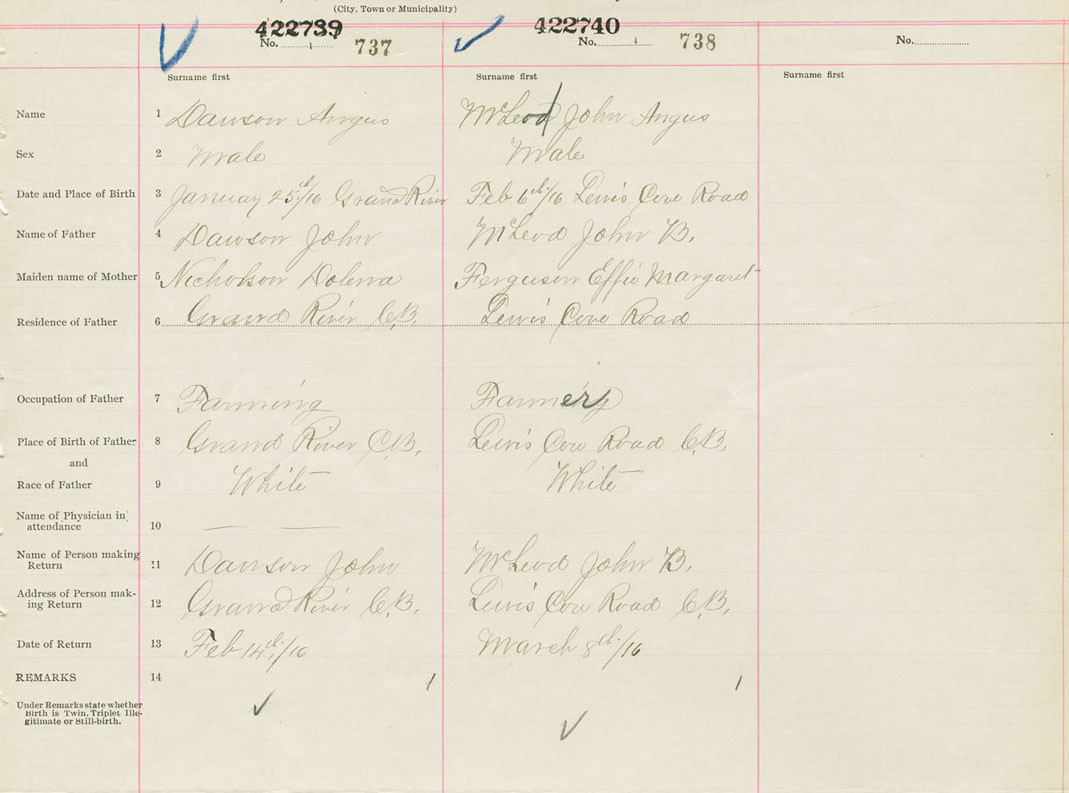 (City, Town or Municipality)
422739 422740
No. 1 737 No. 1 738 No.
Surname first Surname first Surname first
Name 1 Dawson Angus McLeod John Angus
Sex 2 Male Male
Date and Place of Birth 3 January 25th/16 Grand River Feb 6th/16 Lewis Cove Road
Name of Father 4 Dawson John McLeod John B.
Maiden name of Mother 5 Nicholson Dolena Ferguson Effie Margaret
Residence of Father 6 Grand River C.B. Lewis Cove Road
Occupation of Father 7 Farming Farmer
Place of Birth of Father 8 Grand River C.B. Lewis Cove Road C.B.
and
Race of Father 9 White White
Name of Physician in
attendance 10 — —
Name of Person making
Return 11 Dawson John McLeod John B.
Address of Person mak-
ing Return 12 Grand River C.B. Lewis Cove Road C.B.
Date of Return 13 Feb 14th/16 March 8th/16
REMARKS 14 1 1
Under Remarks state whether
Birth is Twin, Triplet Ille-
gitimate or Still-birth.